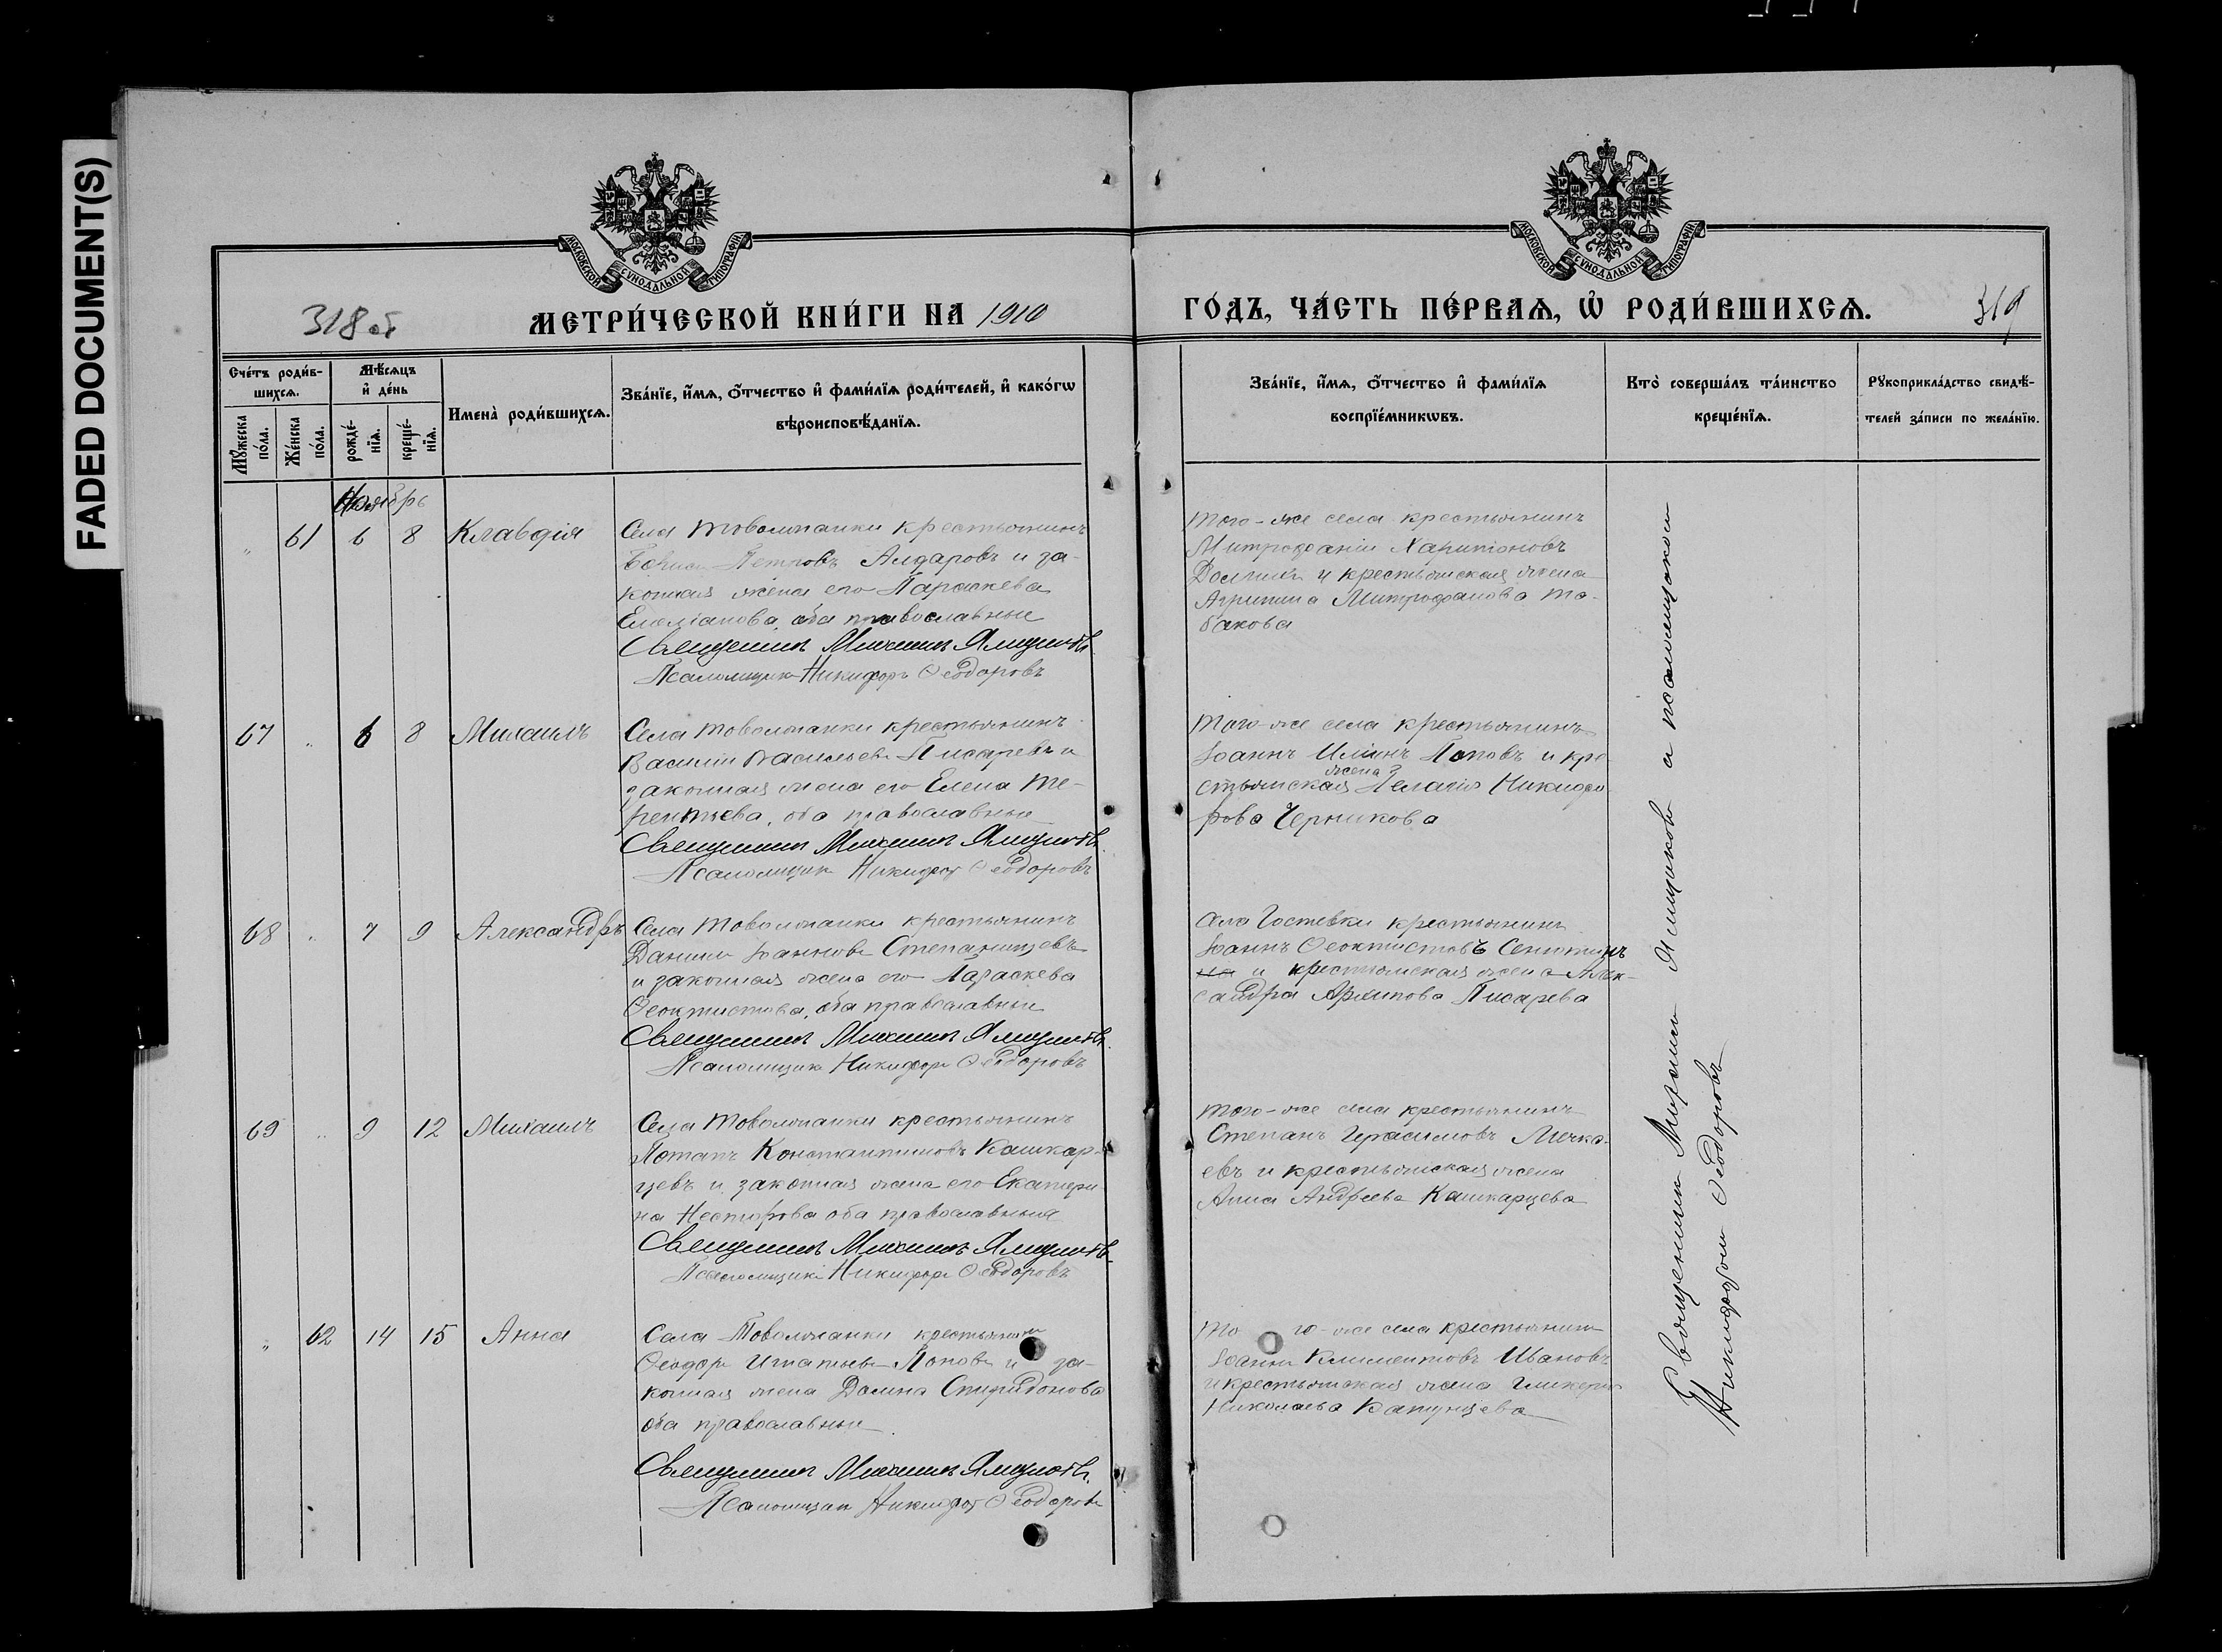 FADED DOCUMENT(S)
МОСКОВСКОЙ СѴНОДАЛЬНОЙ ТИПОГРАФІИ
МОСКОВСКОЙ СѴНОДАЛЬНОЙ ТИПОГРАФІИ
318 об
МЕТРИ́ЧЕСКОЙ КНИ́ГИ НА 1910
ГО́ДЪ, ЧА́СТЬ ПЕ́РВАѦ, Ѡ҆ РОДИ́ВШИХСѦ.
319
Сче́тъ роди́в-
шихсѧ.
Мꙋ́жеска по́ла.
Же́нска по́ла.
Мѣ́сѧцъ
и҆ де́нь
рожде́-нїѧ.
креще́-нїѧ.
Имена̀ роди́вшихсѧ.
Зва́нїе, и҆́мѧ, ѻ҆́тчество и҆ фами́лїѧ роди́телей, и҆ како́гѡ
вѣроисповѣ́данїѧ.
Зва́нїе, и҆́мѧ, ѻ҆́тчество и҆ фами́лїѧ
воспрїе́мникѡвъ.
Кто̀ соверша́лъ та́инство
креще́нїѧ.
Рꙋкоприкла́дство свидѣ́-
телей за́писи по жела́нїю.
Ноябрь
" 61 6 8 Клавдія
Села Товолжанки крестьянинъ
Петровъ Алдаровъ и за-
конная жена его Параскева
оба православные
Священникъ Михаилъ
Псаломщикъ Никифоръ Ѳеодоровъ
Того-же села крестьянинъ
Митрофанъ Харитоновъ
и крестьянская жена
Агрипина Митрофанова То-
бакова
67 " 6 8 Михаилъ
Села Товолжанки крестьянинъ
Василій Васильевъ Писаревъ и
законная жена его Елена Те-
рентьева, оба православные
Священникъ Михаилъ
Псаломщикъ Никифоръ Ѳеодоровъ
Того-же села крестьянинъ
Іоаннъ Ильинъ Поповъ и кре-
жена
стьянская Пелагія Никифо-
рова Черникова
68 " 7 9 Александръ
Села Товолжанки крестьянинъ
Даніилъ Іоанновъ Степанищевъ
и законная жена его Параскева
Ѳеоктистова, оба православные
Священникъ Михаилъ
Псаломщикъ Никифоръ Ѳеодоровъ
Села Гостевки крестьянинъ
Іоаннъ Ѳеоктистовъ Сенютинъ
и крестьянская жена Алек-
сандра Архипова Писарева
69 " 9 12 Михаилъ
Села Товолжанки крестьянинъ
Потапъ Константиновъ Кашкар-
цевъ и законная жена его Екатери-
на Нестерова оба православные
Священникъ Михаилъ
Псаломщикъ Никифоръ Ѳеодоровъ
Того-же села крестьянинъ
Степанъ Герасимовъ Мечка-
евъ и крестьянская жена
Анна Андреева Кашкарцева
" 62 14 15 Анна
Села Товолжанки крестьянинъ
Ѳеодоръ Игнатьевъ Поповъ и за-
конная жена Домна Спиридонова
оба православные
Священникъ Михаилъ
Псаломщикъ Никифоръ Ѳеодоровъ
Того-же села крестьянинъ
Іоаннъ Климентовъ Ивановъ
и крестьянская жена Гликерія
Николаева
Священникъ Михаилъ съ псаломщикомъ
Никифоромъ Ѳеодоровъ